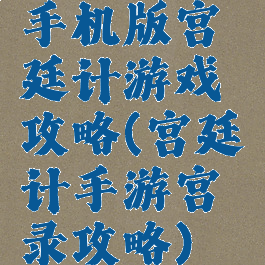 手机版宫
廷计游戏
攻略(宫廷
计手游宫
录攻略)